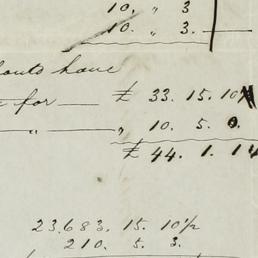 10. " 3
10. " 3.
have
for £ 33. 15. 10
" " 10. 5. 0.
£ 44. 1. 1
23.683. 15. 10½
210. 5. 3.